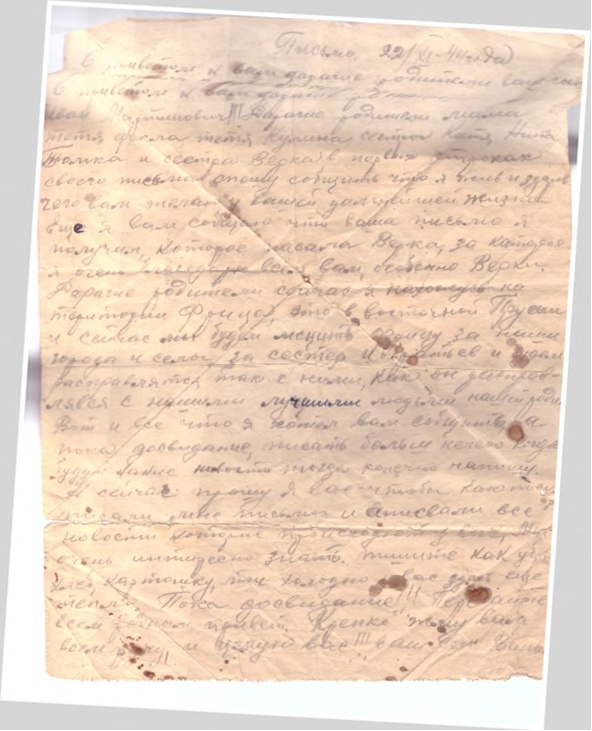 Письмо. 22/XI-44 года
С приветом к вам дарагие родители ваш сын
С приветом к вам дарагие
Иван Мартинович!!! Дарагие родители мама
тётя фекла тётя сестра Катя Нина
Томка и сестра Верка! в первых строках
своего письма спешу сообщить что я жив и здоров
чего вам желаю в вашей дальнейшей жизни
еще я вам сообщаю что ваша письмо я
получил, которое писала Верка, за которое
я очень всех вам, особенно Верки.
Дарагие родители сейчас я нахожусь на
територии Фрицов, это в восточной Прусии
и сейчас мы будем мстить фрицу за наши
города и села, за сестер и братьев и будем
расправлятся так с ними, как он расправ
лялся с нашими лучшими людьми нашей роди.
Вот и все что я хотел вам сообщить а
пока досвидание, писать больш нечего когда
будут какие новости тогда конечно напишу.
А сейчас прошу я вас чтобы как
писали мне письма и описвали все
новости которые происходят у вас,
очень интересно знать. пишите как
картошку, или холодно у вас или еще
тепло. Пока досвидание!!! Передайте
всем родным привет. Крепко жму ваш
всем руку и целую вас!!! ваш сын